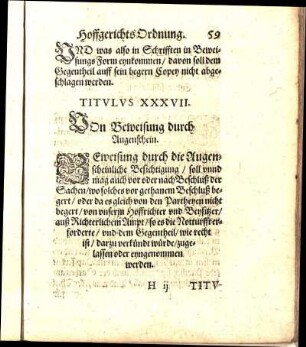 Hoffgerichts Ordnung. 59
VND was also in Schrifften in Bewei-
sungs Form eynkommen / davon soll dem
Gegentheil auff sein begern Copey nicht abge-
schlagen werden.
TITVLVS XXXVII.
VOn Beweisung durch
Augenschein.
BEweisung durch die Augen-
scheinliche Besichtigung / soll vnnd
mag auch vor oder nach Beschluß der
Sachen / wo solches vor gethanem Beschluß be-
gert / oder da es gleich von den Partheyen nicht
begert / von vnserm Hoffrichter vnd Beysitzer /
auß Richterlichem Ampt / so es die Notturfft er-
forderte / vnd dem Gegentheil / wie recht
ist / darzu verkündt würde / zuge-
lassen oder eyngenommen
werden.
H ij TITV-